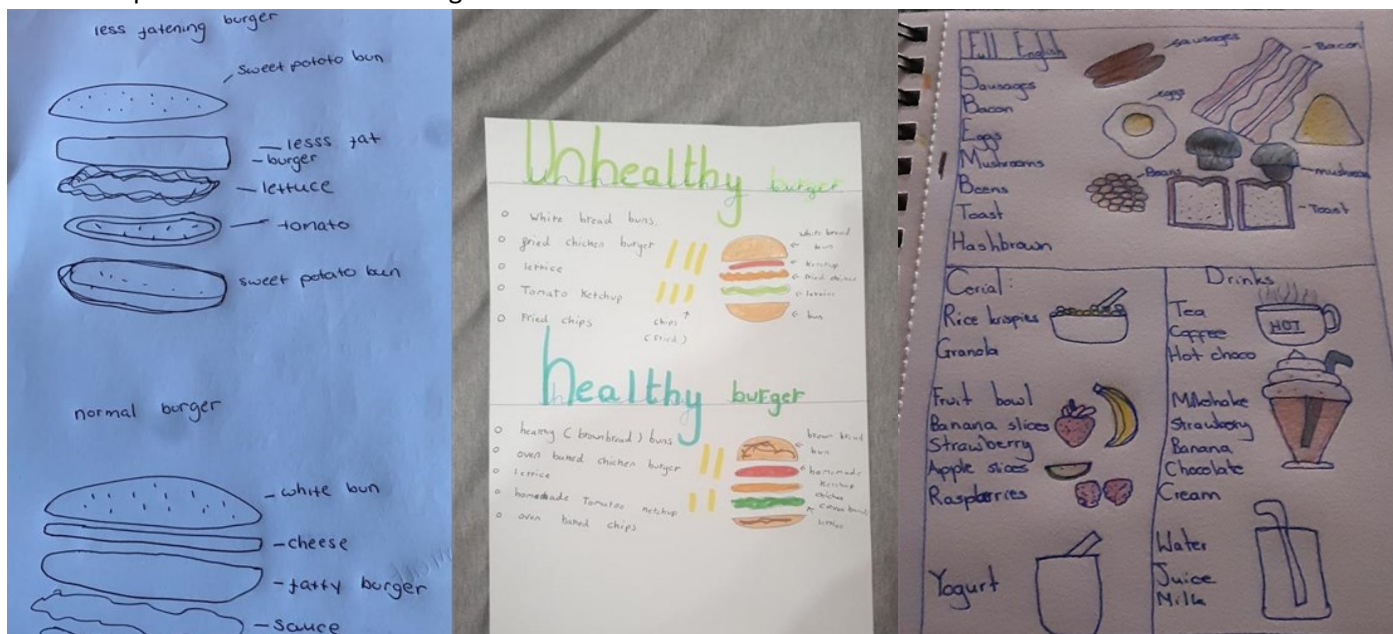 less fatening burger
sweet potato bun
lesss fat
burger
lettuce
tomato
sweet potato bun
normal burger
white bun
cheese
fatty burger
sauce
Unhealthy burger
White bread buns.
fried chicken burger
lettice
Tomato Ketchup
Fried chips
chips
(fried)
white bread
bun
Ketchup
fried chicken
lettice
bun
healthy burger
healthy (brown bread) buns
oven baked chicken burger
lettice
homemade Tomato Ketchup
oven baked chips
brown bread
bun
homemade
Ketchup
chicken
lettice
Full English
Sausages
Bacon
Eggs
Mushrooms
Beens
Toast
Hashbrown
sausages
Bacon
eggs
Beans
mushroom
Toast
Cerial:
Rice krispies
Granola
Fruit bowl
Banana slices
Strawberry
Apple slices
Raspberries
Yogurt
Drinks
Tea
Coffee
Hot choco
HOT
Milkshake
Strawberry
Banana
Chocolate
Cream
Water
Juice
Milk